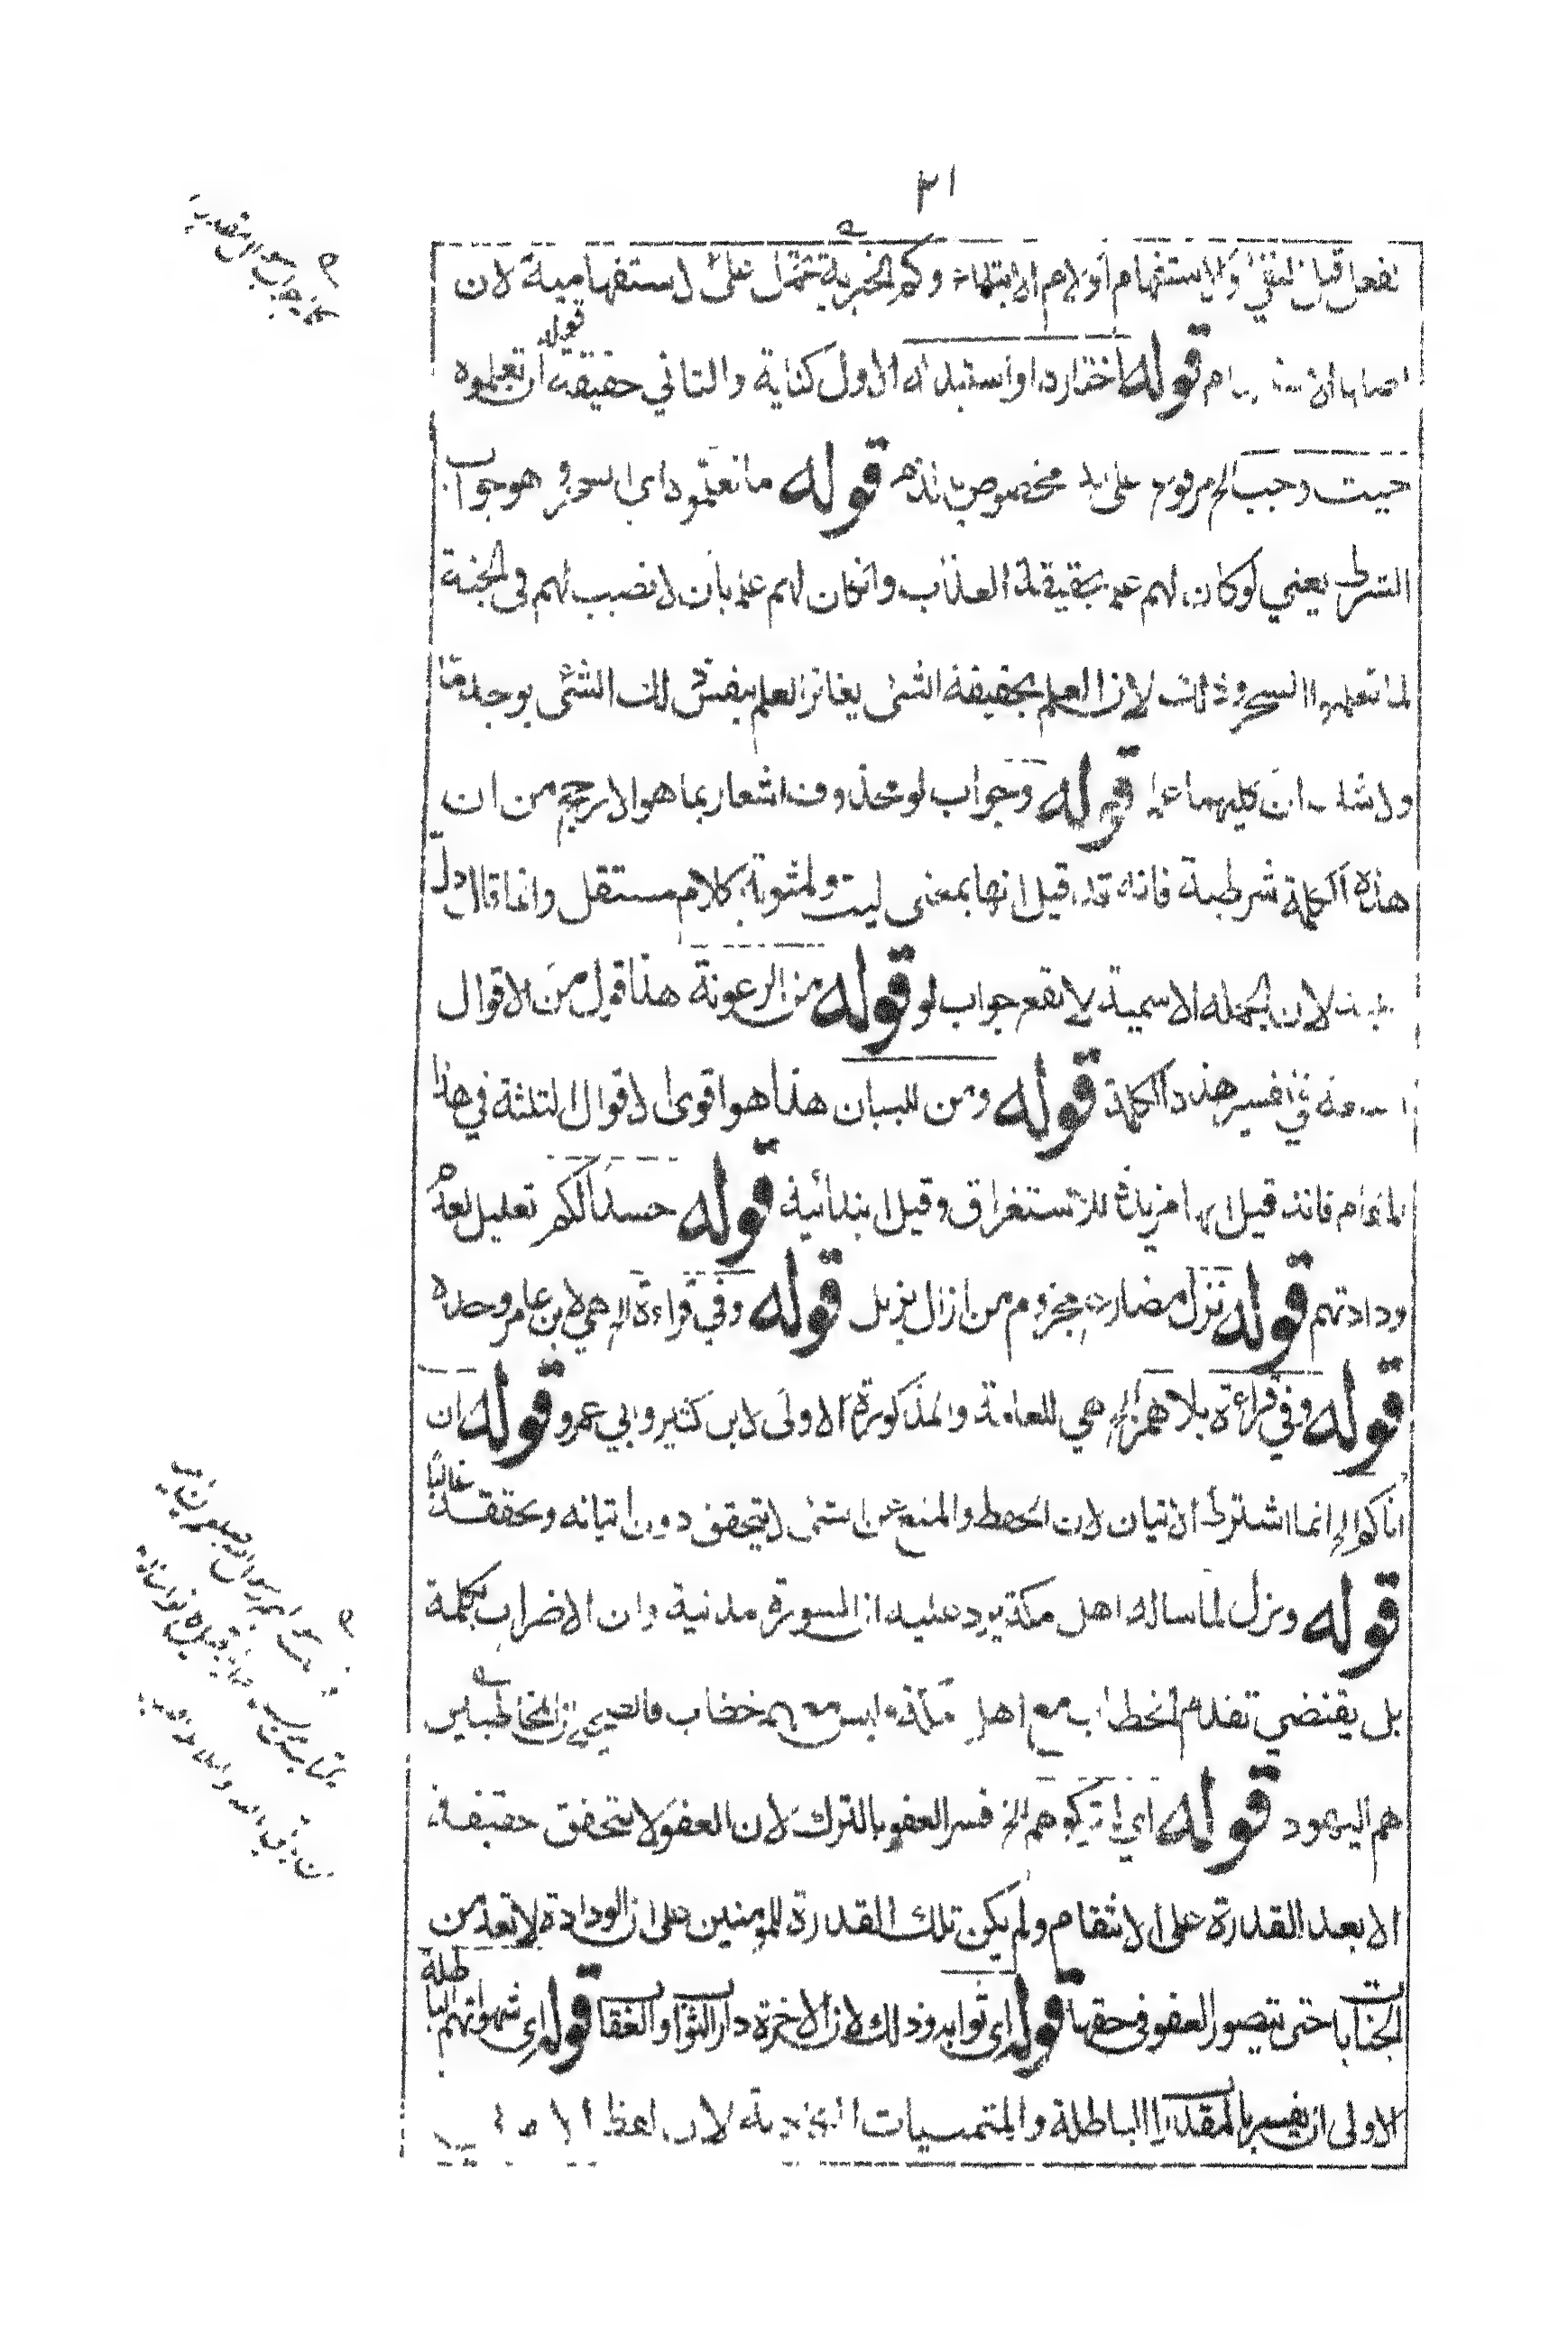 ٢١
لفعل قبل النفي والاستفهام او لام الابتداء وكم الخبرية تحمل على الاستفهامية لان
اصلها الاستفهام قوله اختاره او استبدله الاول كناية والثاني حقيقة قوله ان تعلموه
حيث وجب الخ مرفوع على انه مخصوص بالذم قوله ما تعلموه اي السحر وهو جواب
الشرط يعني لو كان لهم علم بحقيقة العذاب وان كان لهم علم بان لا نصيب لهم في الجنة
لما تعلموا السحر وذلك لان العلم بحقيقة الشئ يغائر العلم بنفس ذلك الشئ بوجه ما
ولا شك ان كليهما علم قوله وجواب لو محذوف اشعار بما هو الارجح من ان
هذه الكلمة شرطية فانه قد قيل انها بمعنى ليت ولمثوبة كلام مستقل وانما قال دل
عليه لان الجملة الاسمية لا تقع جواب لو قوله من الرعونة هذا قول من الاقوال
في تفسير هذه الكلمة قوله ومن للبيان هذا هو اقوى الاقوال الثلثة في هذا
المقام فانه قيل انها مزيدة للاستغراق وقيل ابتدائية قوله حسدا لكم تعليل لعدم
ودادتهم قوله ننزل مضارع مجزوم من انزل ينزل قوله وفي قراءة الخ هي لابن عامر وحده
قوله وفي قراءة بلا همز الخ هي للعامة والمذكورة الاولى لابن كثير وابي عمرو قوله ان
اتاكم الخ انما اشترط الاتيان لان الحفظ والمنع عن الشئ لا يتحقق دون اتيانه وتحققه غالبا
قوله ونزل لما ساله اهل مكة يرد عليه ان السورة مدنية وان الاضراب بكلمة
بل يقتضي تقدم الخطاب مع اهل مكة وليس معهم خطاب فالصحيح ان المخاطبين
هم اليهود قوله اي اتركوهم الخ فسر العفو بالترك لان العفو لا يتحقق حقيقة
الا بعد القدرة على الانتقام ولم يكن تلك القدرة للمؤمنين على ان الودادة لا تعد من
الجنايات حتى يتصور العفو في حقها قوله اي ثوابه وذلك لان الاخرة دار الثواب والعقاب قوله اي شهواتهم الباطلة
الاولى ان يفسر بالمقدرات الباطلة والمتمنيات لان لفظ